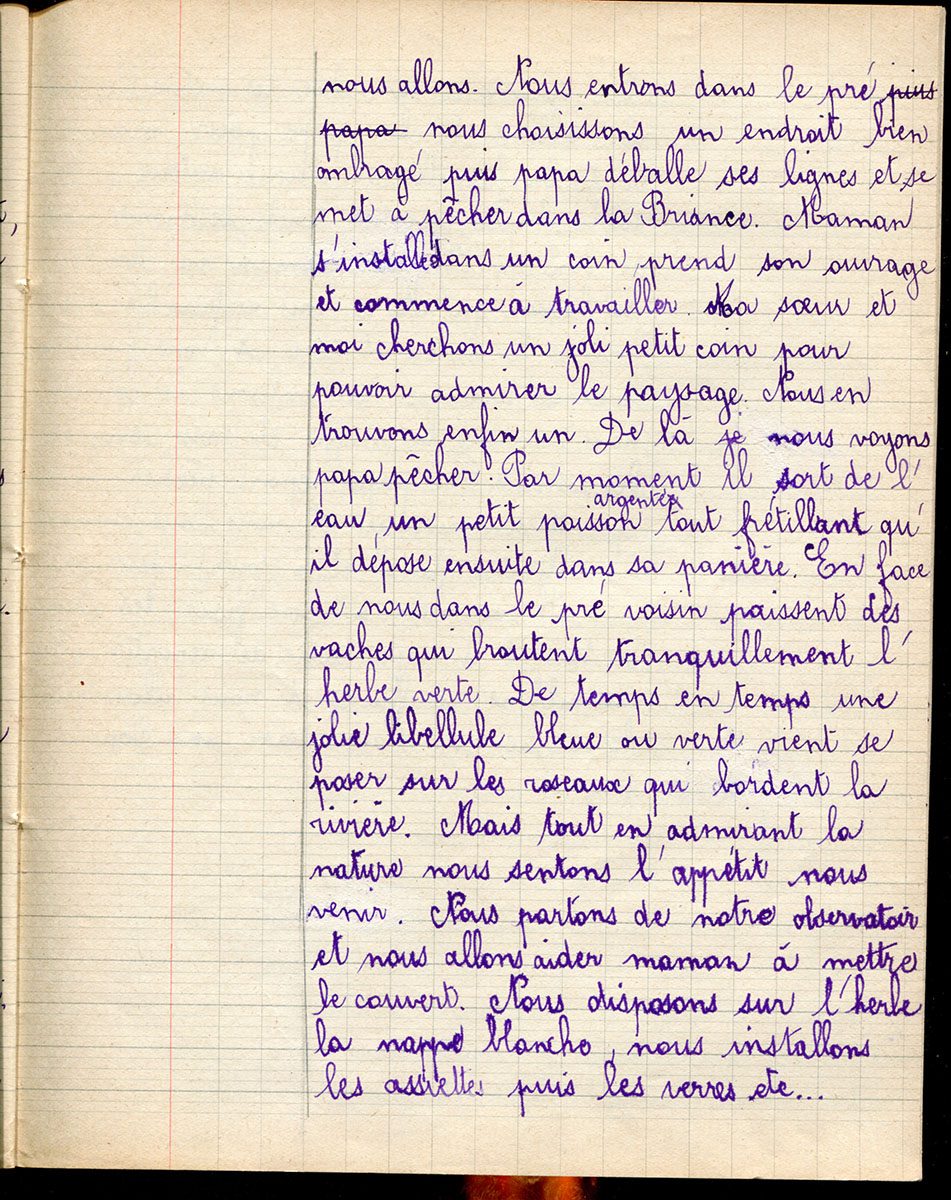 nous allons. Nous entrons dans le pré puis
papa nous choisissons un endroit bien
ombragé puis papa déballe ses lignes et se
met à pêcher dans la Briance. Maman
s'installe dans un coin prend son ouvrage
et commence à travailler. Ma sœur et
moi cherchons un joli petit coin pour
pouvoir admirer le paysage. Nous en
trouvons enfin un. De là je nous voyons
papa pêcher. Par moment il sort de l'
argenté
eau un petit poisson tout frétillant qu'
il dépose ensuite dans sa panière. En face
de nous dans le pré voisin paissent des
vaches qui broutent tranquillement l'
herbe verte. De temps en temps une
jolie libellule bleue ou verte vient se
poser sur les roseaux qui bordent la
rivière. Mais tout en admirant la
nature nous sentons l'appétit nous
venir. Nous partons de notre observatoir
et nous allons aider maman à mettre
le couvert. Nous disposons sur l'herbe
la nappe blanche, nous installons
les assiettes puis les verres etc...